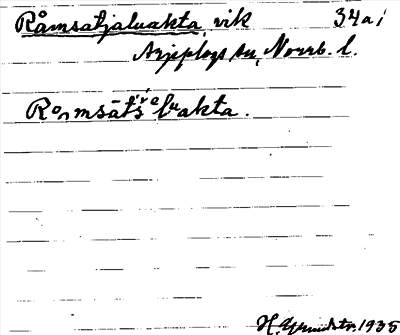 Råmsatjaluakta, vik 34a;
Arjeplogs sn, Norrb. l.
Romsātś luakta.
H. Grundstr. 1935